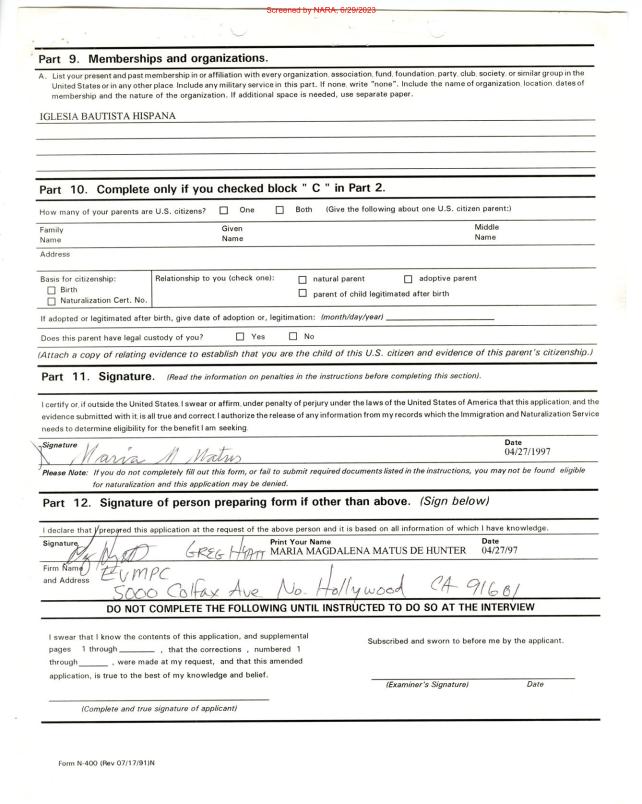 Screened by NARA, 6/29/2023
Part 9. Memberships and organizations.
A. List your present and past membership in or affiliation with every organization, association, fund, foundation, party, club, society, or similar group in the
United States or in any other place. Include any military service in this part. If none, write "none". Include the name of organization, location, dates of
membership and the nature of the organization. If additional space is needed, use separate paper.
IGLESIA BAUTISTA HISPANA
Part 10. Complete only if you checked block " C " in Part 2.
How many of your parents are U.S. citizens? One Both (Give the following about one U.S. citizen parent:)
Family Given Middle
Name Name Name
Address
Basis for citizenship: Relationship to you (check one): natural parent adoptive parent
Birth
Naturalization Cert. No. parent of child legitimated after birth
If adopted or legitimated after birth, give date of adoption or, legitimation: (month/day/year)
Does this parent have legal custody of you? Yes No
(Attach a copy of relating evidence to establish that you are the child of this U.S. citizen and evidence of this parent's citizenship.)
Part 11. Signature. (Read the information on penalties in the instructions before completing this section).
I certify or, if outside the United States, I swear or affirm, under penalty of perjury under the laws of the United States of America that this application, and the
evidence submitted with it, is all true and correct. I authorize the release of any information from my records which the Immigration and Naturalization Service
needs to determine eligibility for the benefit I am seeking.
Signature Date
Maria M Matus 04/27/1997
Please Note: If you do not completely fill out this form, or fail to submit required documents listed in the instructions, you may not be found eligible
for naturalization and this application may be denied.
Part 12. Signature of person preparing form if other than above. (Sign below)
I declare that I prepared this application at the request of the above person and it is based on all information of which I have knowledge.
Signature Print Your Name Date
GREG HYATT MARIA MAGDALENA MATUS DE HUNTER 04/27/97
Firm Name EVMPC
and Address 5000 Colfax Ave No. Hollywood CA 91601
DO NOT COMPLETE THE FOLLOWING UNTIL INSTRUCTED TO DO SO AT THE INTERVIEW
I swear that I know the contents of this application, and supplemental
pages 1 through , that the corrections , numbered 1
through , were made at my request, and that this amended
application, is true to the best of my knowledge and belief.
(Complete and true signature of applicant)
Subscribed and sworn to before me by the applicant.
(Examiner's Signature) Date
Form N-400 (Rev 07/17/91)N